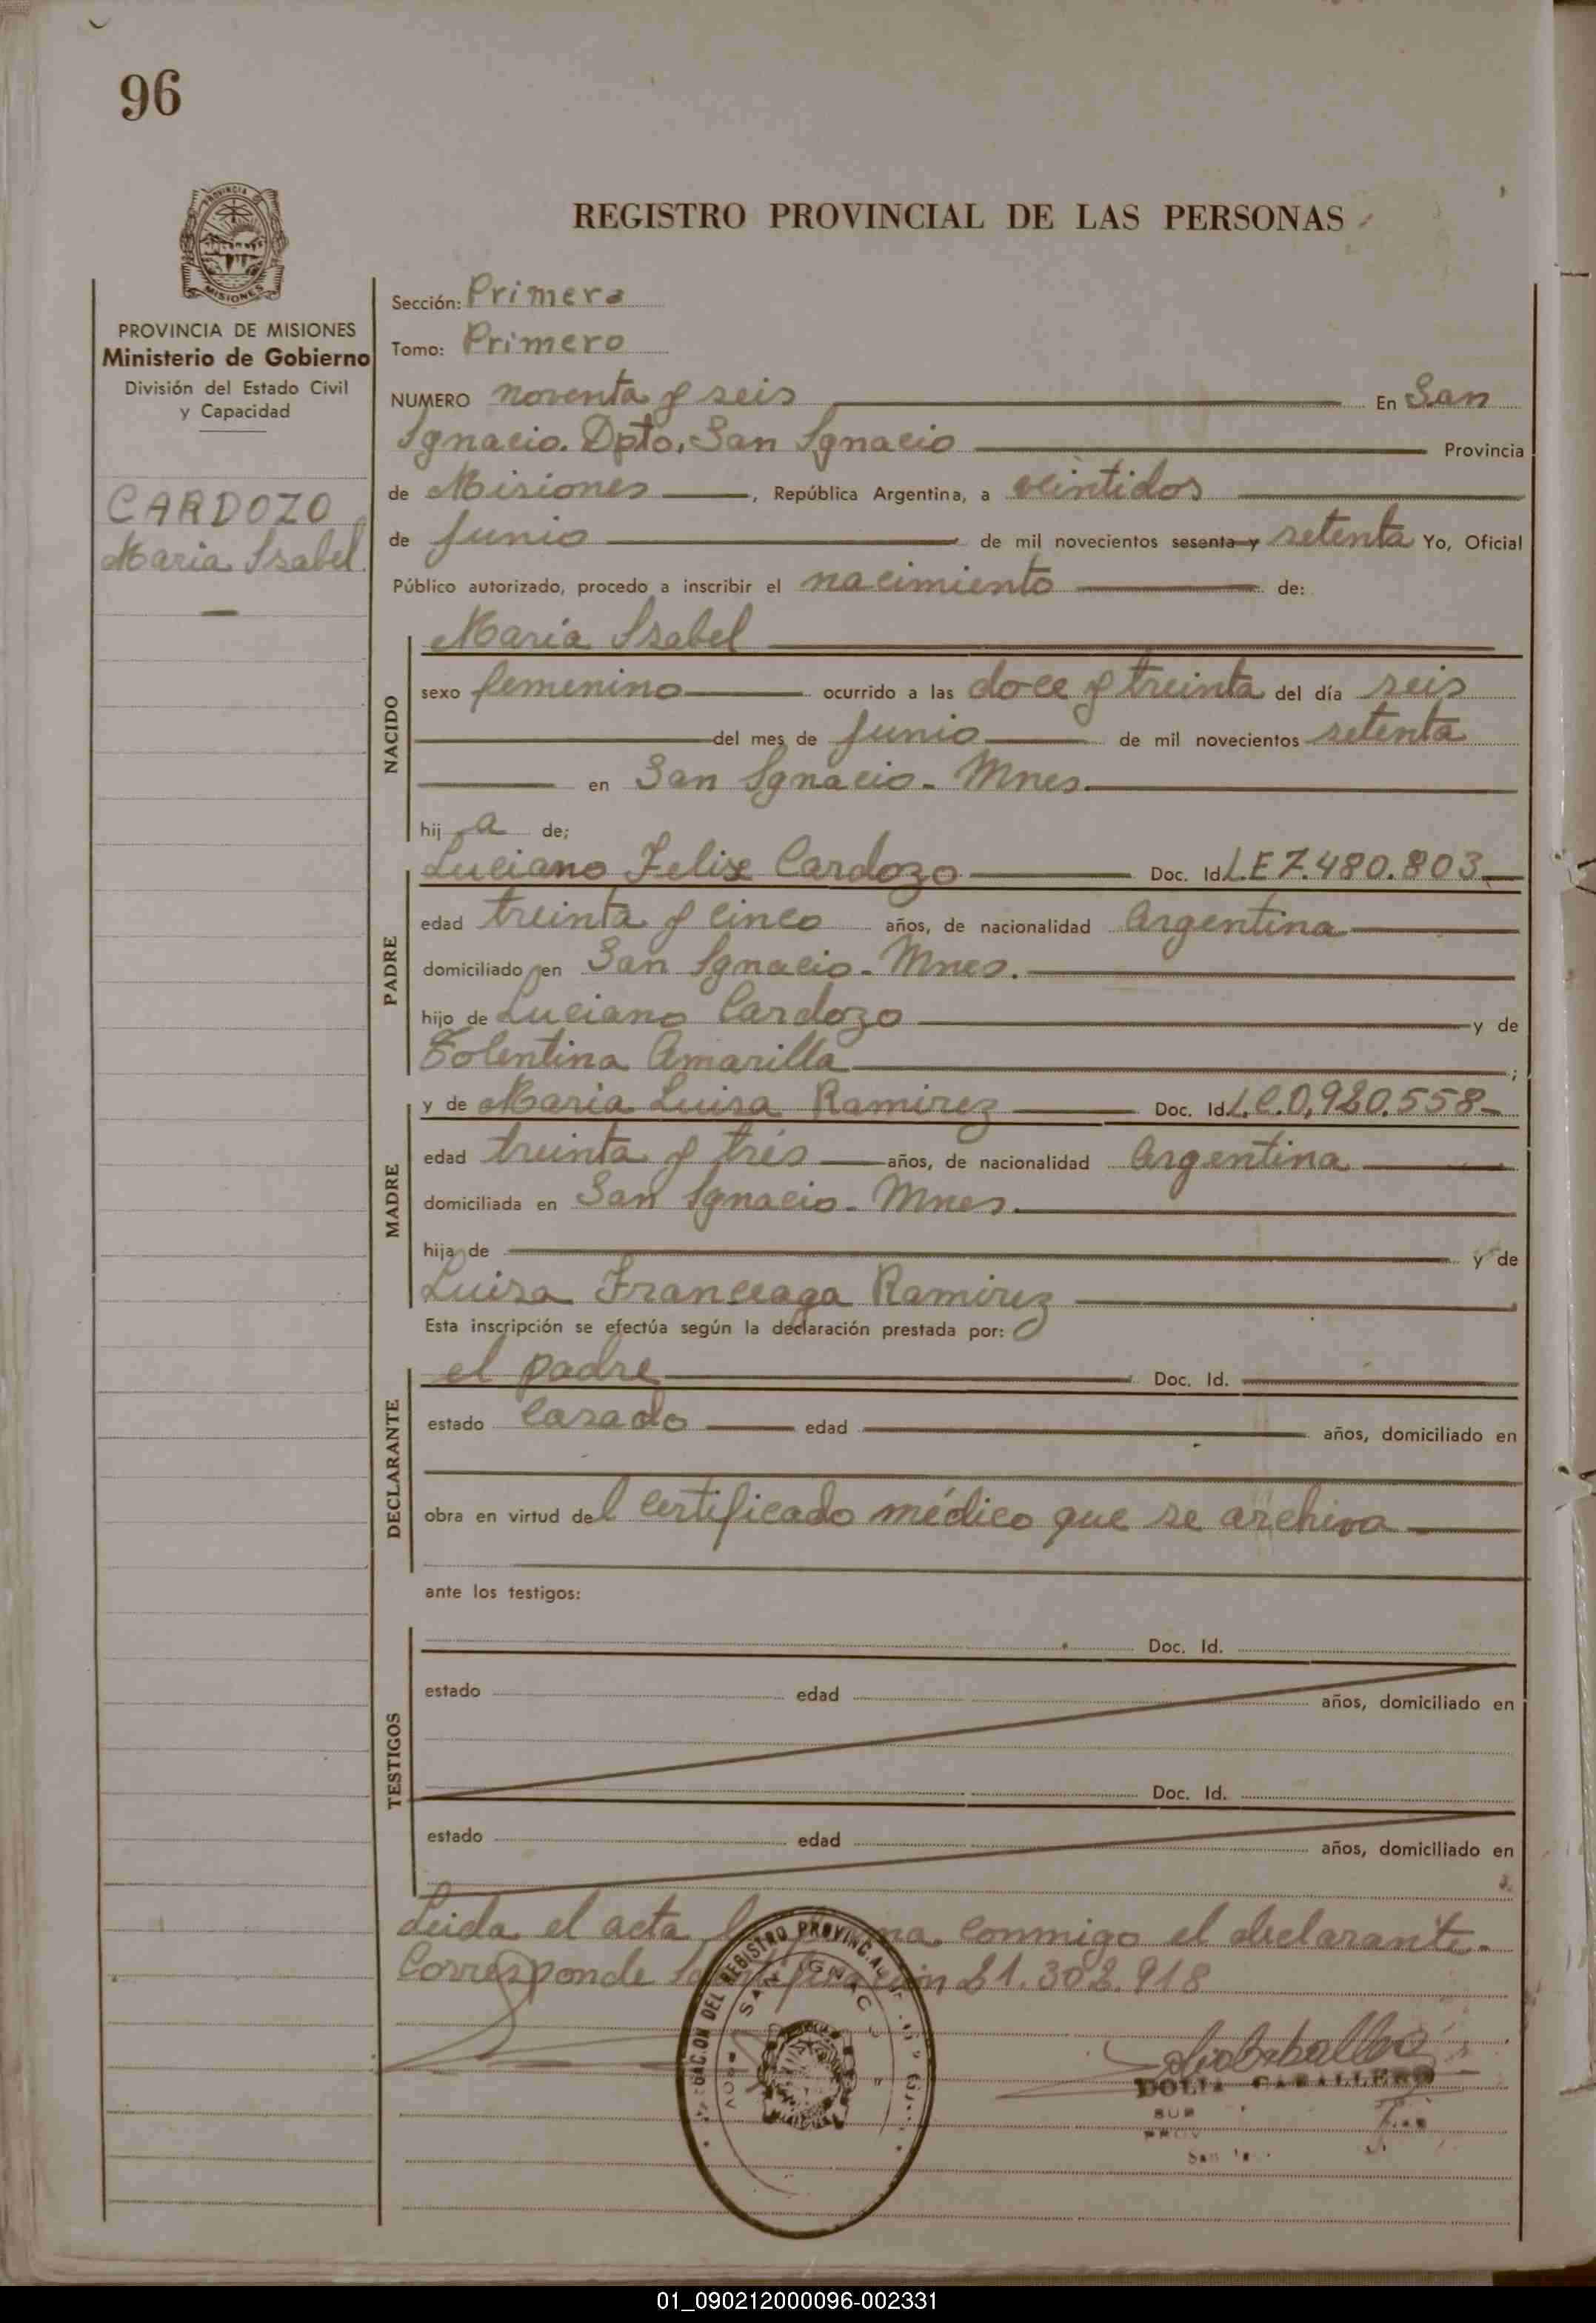 96
PROVINCIA
MISIONES
PROVINCIA DE MISIONES
Ministerio de Gobierno
División del Estado Civil
y Capacidad
CARDOZO
Maria Isabel
REGISTRO PROVINCIAL DE LAS PERSONAS
Sección: Primera
Tomo: Primero
NUMERO noventa y seis En San
Ignacio. Dpto. San Ignacio Provincia
de Misiones, República Argentina, a veintidos
de Junio de mil novecientos sesenta y setenta Yo, Oficial
Público autorizado, procedo a inscribir el nacimiento de:
NACIDO
Maria Isabel
sexo femenino ocurrido a las doce y treinta del día seis
del mes de Junio de mil novecientos setenta
en San Ignacio - Mnes.
hij a de;
PADRE
Luciano Felix Cardozo Doc. Id. L.E 7.480.803
edad treinta y cinco años, de nacionalidad Argentina
domiciliado en San Ignacio - Mnes.
hijo de Luciano Cardozo y de
Tolentina Amarilla ;
MADRE
y de Maria Luisa Ramirez Doc. Id. L.C.0,920.558-
edad treinta y trés años, de nacionalidad Argentina
domiciliada en San Ignacio - Mnes.
hija de y de
Luisa Ramirez
Esta inscripción se efectúa según la declaración prestada por:
DECLARANTE
el padre Doc. Id.
estado casado edad años, domiciliado en
obra en virtud del certificado médico que se archiva
ante los testigos:
TESTIGOS
Doc. Id.
estado edad años, domiciliado en
Doc. Id.
estado edad años, domiciliado en
Leida el acta conmigo el declarante.
Corresponde 21.302.918
DEL REGISTRO PROVINCIAL
SAN IGNACIO
CABALLERO
SUB
01_090212000096-002331